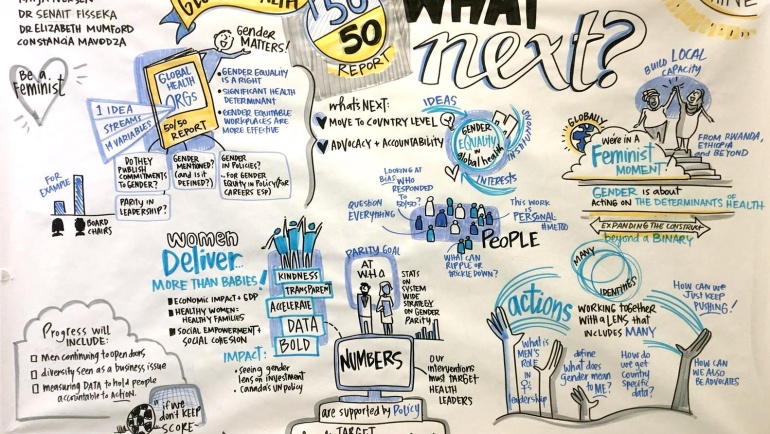 DR SENAIT FISSEKA
DR ELIZABETH MUMFORD
CONSTANCIA MAVODZA
50
50
REPORT
WHAT
next?
Be a
Feminist
Gender
MATTERS!
GLOBAL
HEALTH
ORGS
50/50
REPORT
1 IDEA
STREAMS
M VARIABLES
• GENDER EQUALITY
IS A RIGHT
• SIGNIFICANT HEALTH
DETERMINANT
• GENDER EQUITABLE
WORKPLACES ARE
MORE EFFECTIVE
FOR
EXAMPLE
BOARD
CHAIRS
DO THEY
PUBLISH
COMMITMENTS
TO GENDER?
PARITY IN
LEADERSHIP?
GENDER
MENTIONED?
(and is it
DEFINED?)
GENDER
IN POLICIES?
FOR GENDER
EQUITY IN POLICY (FOR
CAREERS ESP)
whats NEXT:
MOVE TO COUNTRY LEVEL
ADVOCACY + ACCOUNTABILITY
IDEAS
GENDER
EQUALITY
in
global health
INTERESTS
BUILD LOCAL
CAPACITY
FROM RWANDA,
ETHIOPIA
and BEYOND
GLOBALLY
we're in a
Feminist
MOMENT
GENDER is about
ACTING ON THE DETERMINANTS OF HEALTH
EXPANDING THE CONSTRUCT
beyond a BINARY
LOOKING AT
BIAS WHO
RESPONDED
TO
50/50?
QUESTION
EVERYTHING
THIS WORK
is PERSONAL
#METOO
PEOPLE
WHAT CAN
RIPPLE OR
TRICKLE DOWN?
women
Deliver...
MORE THAN BABIES!
ECONOMIC IMPACT + GDP
HEALTHY WOMEN =
HEALTHY FAMILIES
SOCIAL EMPOWERMENT +
SOCIAL COHESION
IMPACT:
• seeing gender
lens on investment
• Canada's UN policy
KINDNESS
TRANSPARENT
ACCELERATE
DATA
BOLD
PARITY GOAL
AT
WHO
STATS
ON
SYSTEM
WIDE
STRATEGY
ON GENDER
PARITY
NUMBERS
are supported by Policy
TARGET
OUR
interventions
must TARGET
HEALTH
LEADERS
MANY
IDENTITIES
actions
WORKING together
WITH a LENS that
INCLUDES MANY
HOW can WE
JUST KEEP
PUSHING!
WHAT is
MEN'S
ROLE
IN
leadership
define
what does
gender mean
to ME?
How do
we get
COUNTRY
SPECIFIC
data?
HOW CAN
WE ALSO
BE ADVOCATES
Progress will
INCLUDE:
men continuing to open doors
diversity seen as a business issue
measuring DATA to hold people
accountable to action.
if we
don't KEEP
SCORE-